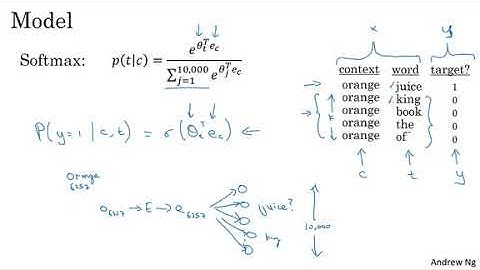 Model
Softmax: p(t|c) = e^{θ_t^T e_c} / Σ_{j=1}^{10,000} e^{θ_j^T e_c}
x y
context word target?
orange juice 1
orange king 0
orange book 0
orange the 0
orange of 0
k
c t y
P(y=1|c,t) = σ(θ_t^T e_c) ←
Orange
6257
o_6257 → E → e_6257
juice?
king
10,000
Andrew Ng